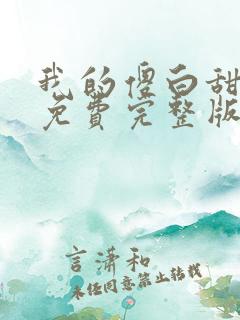 我的傻白甜
免費完整版
言溝和
未经同意禁止转载